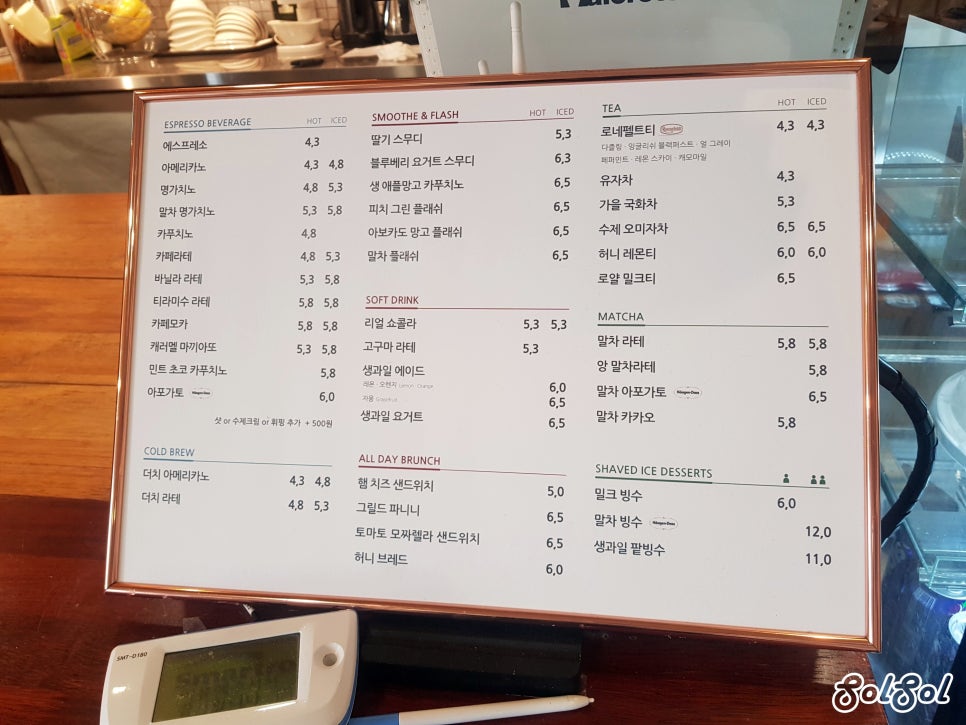 ESPRESSO BEVERAGE HOT ICED
에스프레소 4,3
아메리카노 4,3 4,8
명가치노 4,8 5,3
말차 명가치노 5,3 5,8
카푸치노 4,8
카페라테 4,8 5,3
바닐라 라테 5,3 5,8
티라미수 라테 5,8 5,8
카페모카 5,8 5,8
캐러멜 마끼아또 5,3 5,8
민트 초코 카푸치노 5,8
아포가토 Häagen-Dazs 6,0
샷 or 수제크림 or 휘핑 추가 + 500원
COLD BREW
더치 아메리카노 4,3 4,8
더치 라테 4,8 5,3
SMOOTHE & FLASH HOT ICED
딸기 스무디 5,3
블루베리 요거트 스무디 6,3
생 애플망고 카푸치노 6,5
피치 그린 플래쉬 6,5
아보카도 망고 플래쉬 6,5
말차 플래쉬 6,5
SOFT DRINK
리얼 쇼콜라 5,3 5,3
고구마 라테 5,3
생과일 에이드
레몬 · 오렌지 Lemon · Orange 6,0
자몽 Grapefruit 6,5
생과일 요거트 6,5
ALL DAY BRUNCH
햄 치즈 샌드위치 5,0
그릴드 파니니 6,5
토마토 모짜렐라 샌드위치 6,5
허니 브레드 6,0
TEA HOT ICED
로네펠트티 Ronnefeldt 4,3 4,3
다즐링 · 잉글리쉬 블랙퍼스트 · 얼 그레이
페퍼민트 · 레몬 스카이 · 캐모마일
유자차 4,3
가을 국화차 5,3
수제 오미자차 6,5 6,5
허니 레몬티 6,0 6,0
로얄 밀크티 6,5
MATCHA
말차 라테 5,8 5,8
앙 말차라테 5,8
말차 아포가토 Häagen-Dazs 6,5
말차 카카오 5,8
SHAVED ICE DESSERTS
밀크 빙수 6,0
말차 빙수 Häagen-Dazs 12,0
생과일 팥빙수 11,0
SMT-D180
SolSol